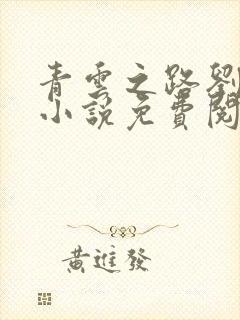 青雲之路劉
小說免費閱
黃進發